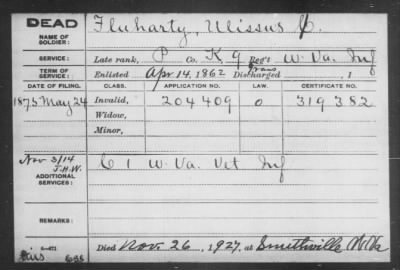 DEAD
NAME OF SOLDIER:
Fluharty, Ulissus C.
SERVICE:
Late rank, P Co. K 9 Reg't W. Va. Inf
TERM OF SERVICE:
Enlisted Apr. 14, 1862 Trans Discharged , 1
DATE OF FILING. CLASS. APPLICATION NO. LAW. CERTIFICATE NO.
1875 May 24 Invalid, 204409 o 319382
Widow,
Minor,
Nov 3/14
J.H.W.
ADDITIONAL SERVICES:
C 1 W. Va. Vet Inf
REMARKS:
Died Nov. 26, 1927, at Smithville W Va